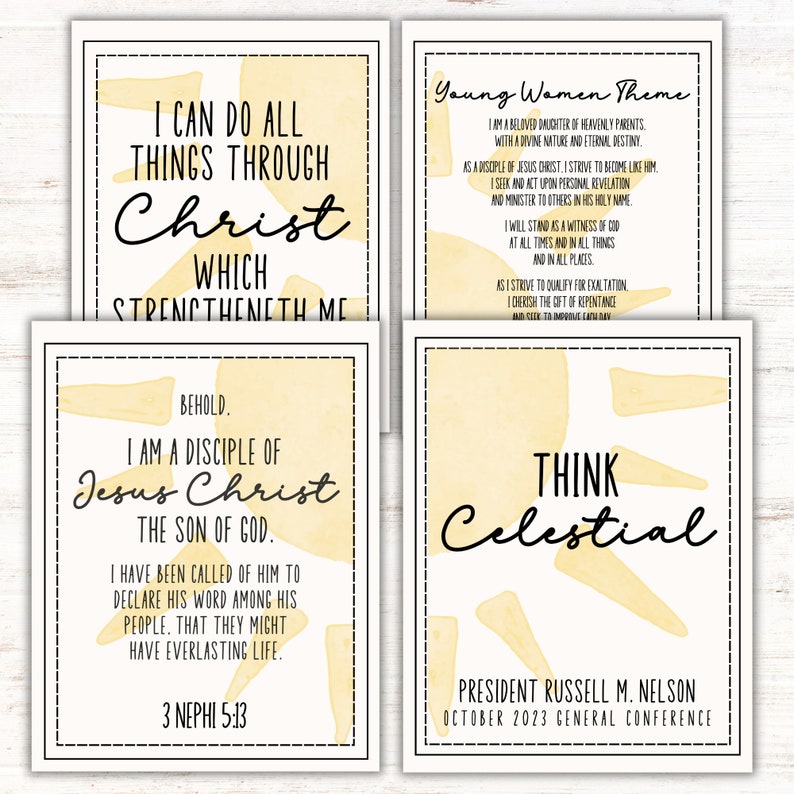 I CAN DO ALL
THINGS THROUGH
Christ
WHICH
STRENGTHENETH ME
Young Women Theme
I AM A BELOVED DAUGHTER OF HEAVENLY PARENTS,
WITH A DIVINE NATURE AND ETERNAL DESTINY.
AS A DISCIPLE OF JESUS CHRIST, I STRIVE TO BECOME LIKE HIM.
I SEEK AND ACT UPON PERSONAL REVELATION
AND MINISTER TO OTHERS IN HIS HOLY NAME.
I WILL STAND AS A WITNESS OF GOD
AT ALL TIMES AND IN ALL THINGS
AND IN ALL PLACES.
AS I STRIVE TO QUALIFY FOR EXALTATION,
I CHERISH THE GIFT OF REPENTANCE
AND SEEK TO IMPROVE EACH DAY.
BEHOLD,
I AM A DISCIPLE OF
Jesus Christ
THE SON OF GOD.
I HAVE BEEN CALLED OF HIM TO
DECLARE HIS WORD AMONG HIS
PEOPLE, THAT THEY MIGHT
HAVE EVERLASTING LIFE.
3 NEPHI 5:13
THINK
Celestial
PRESIDENT RUSSELL M. NELSON
OCTOBER 2023 GENERAL CONFERENCE